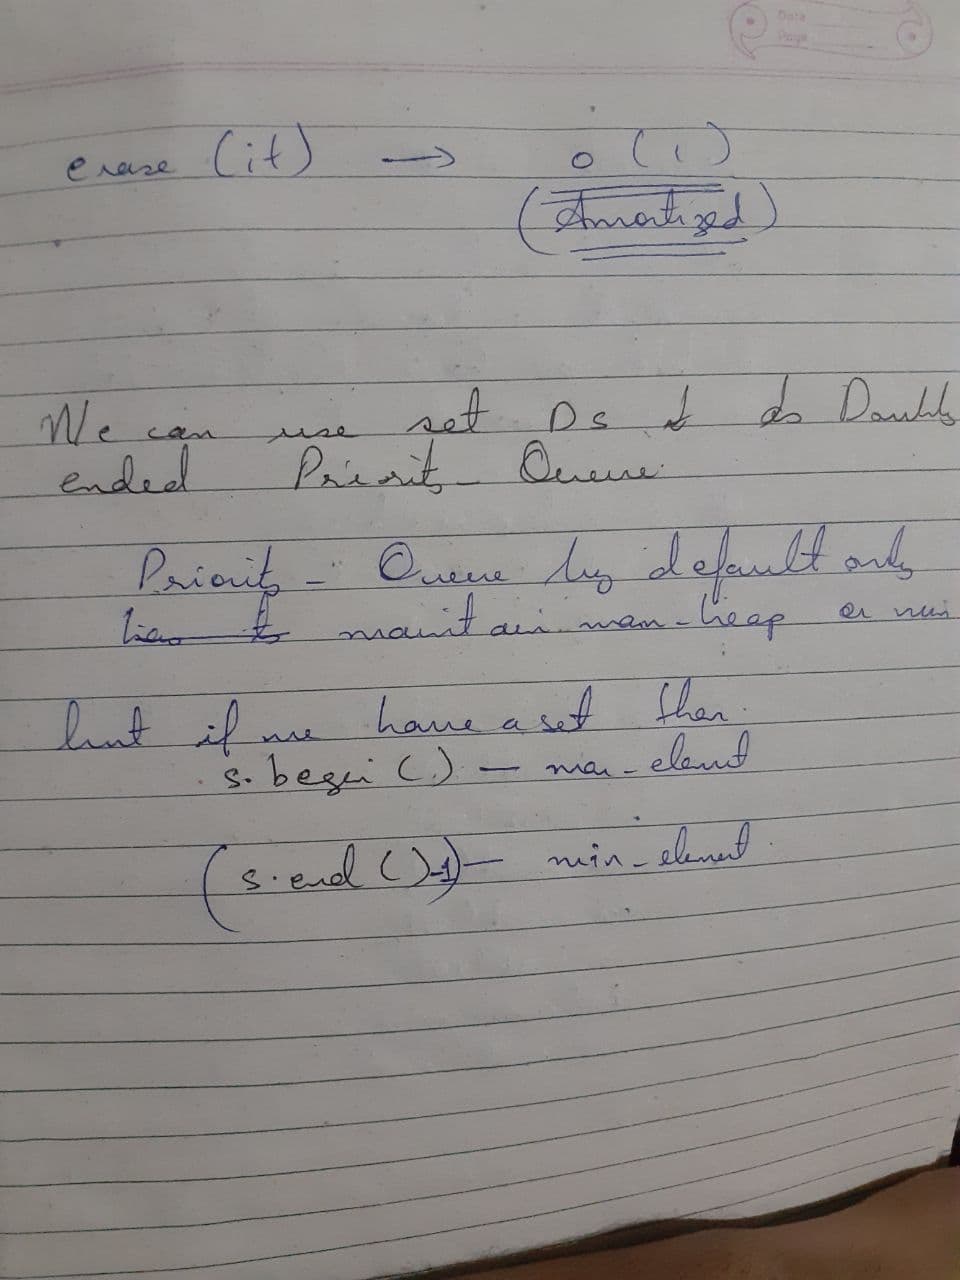 Date
Page
erase (it) → O(1)
(Amortized)
We can use set DS to do Double
ended Priority- Queue
Priority - Queue by default only
has to maintain max-heap or min
but if we have a set then
s.begin() — max-element
(s.end()-1) — min-element